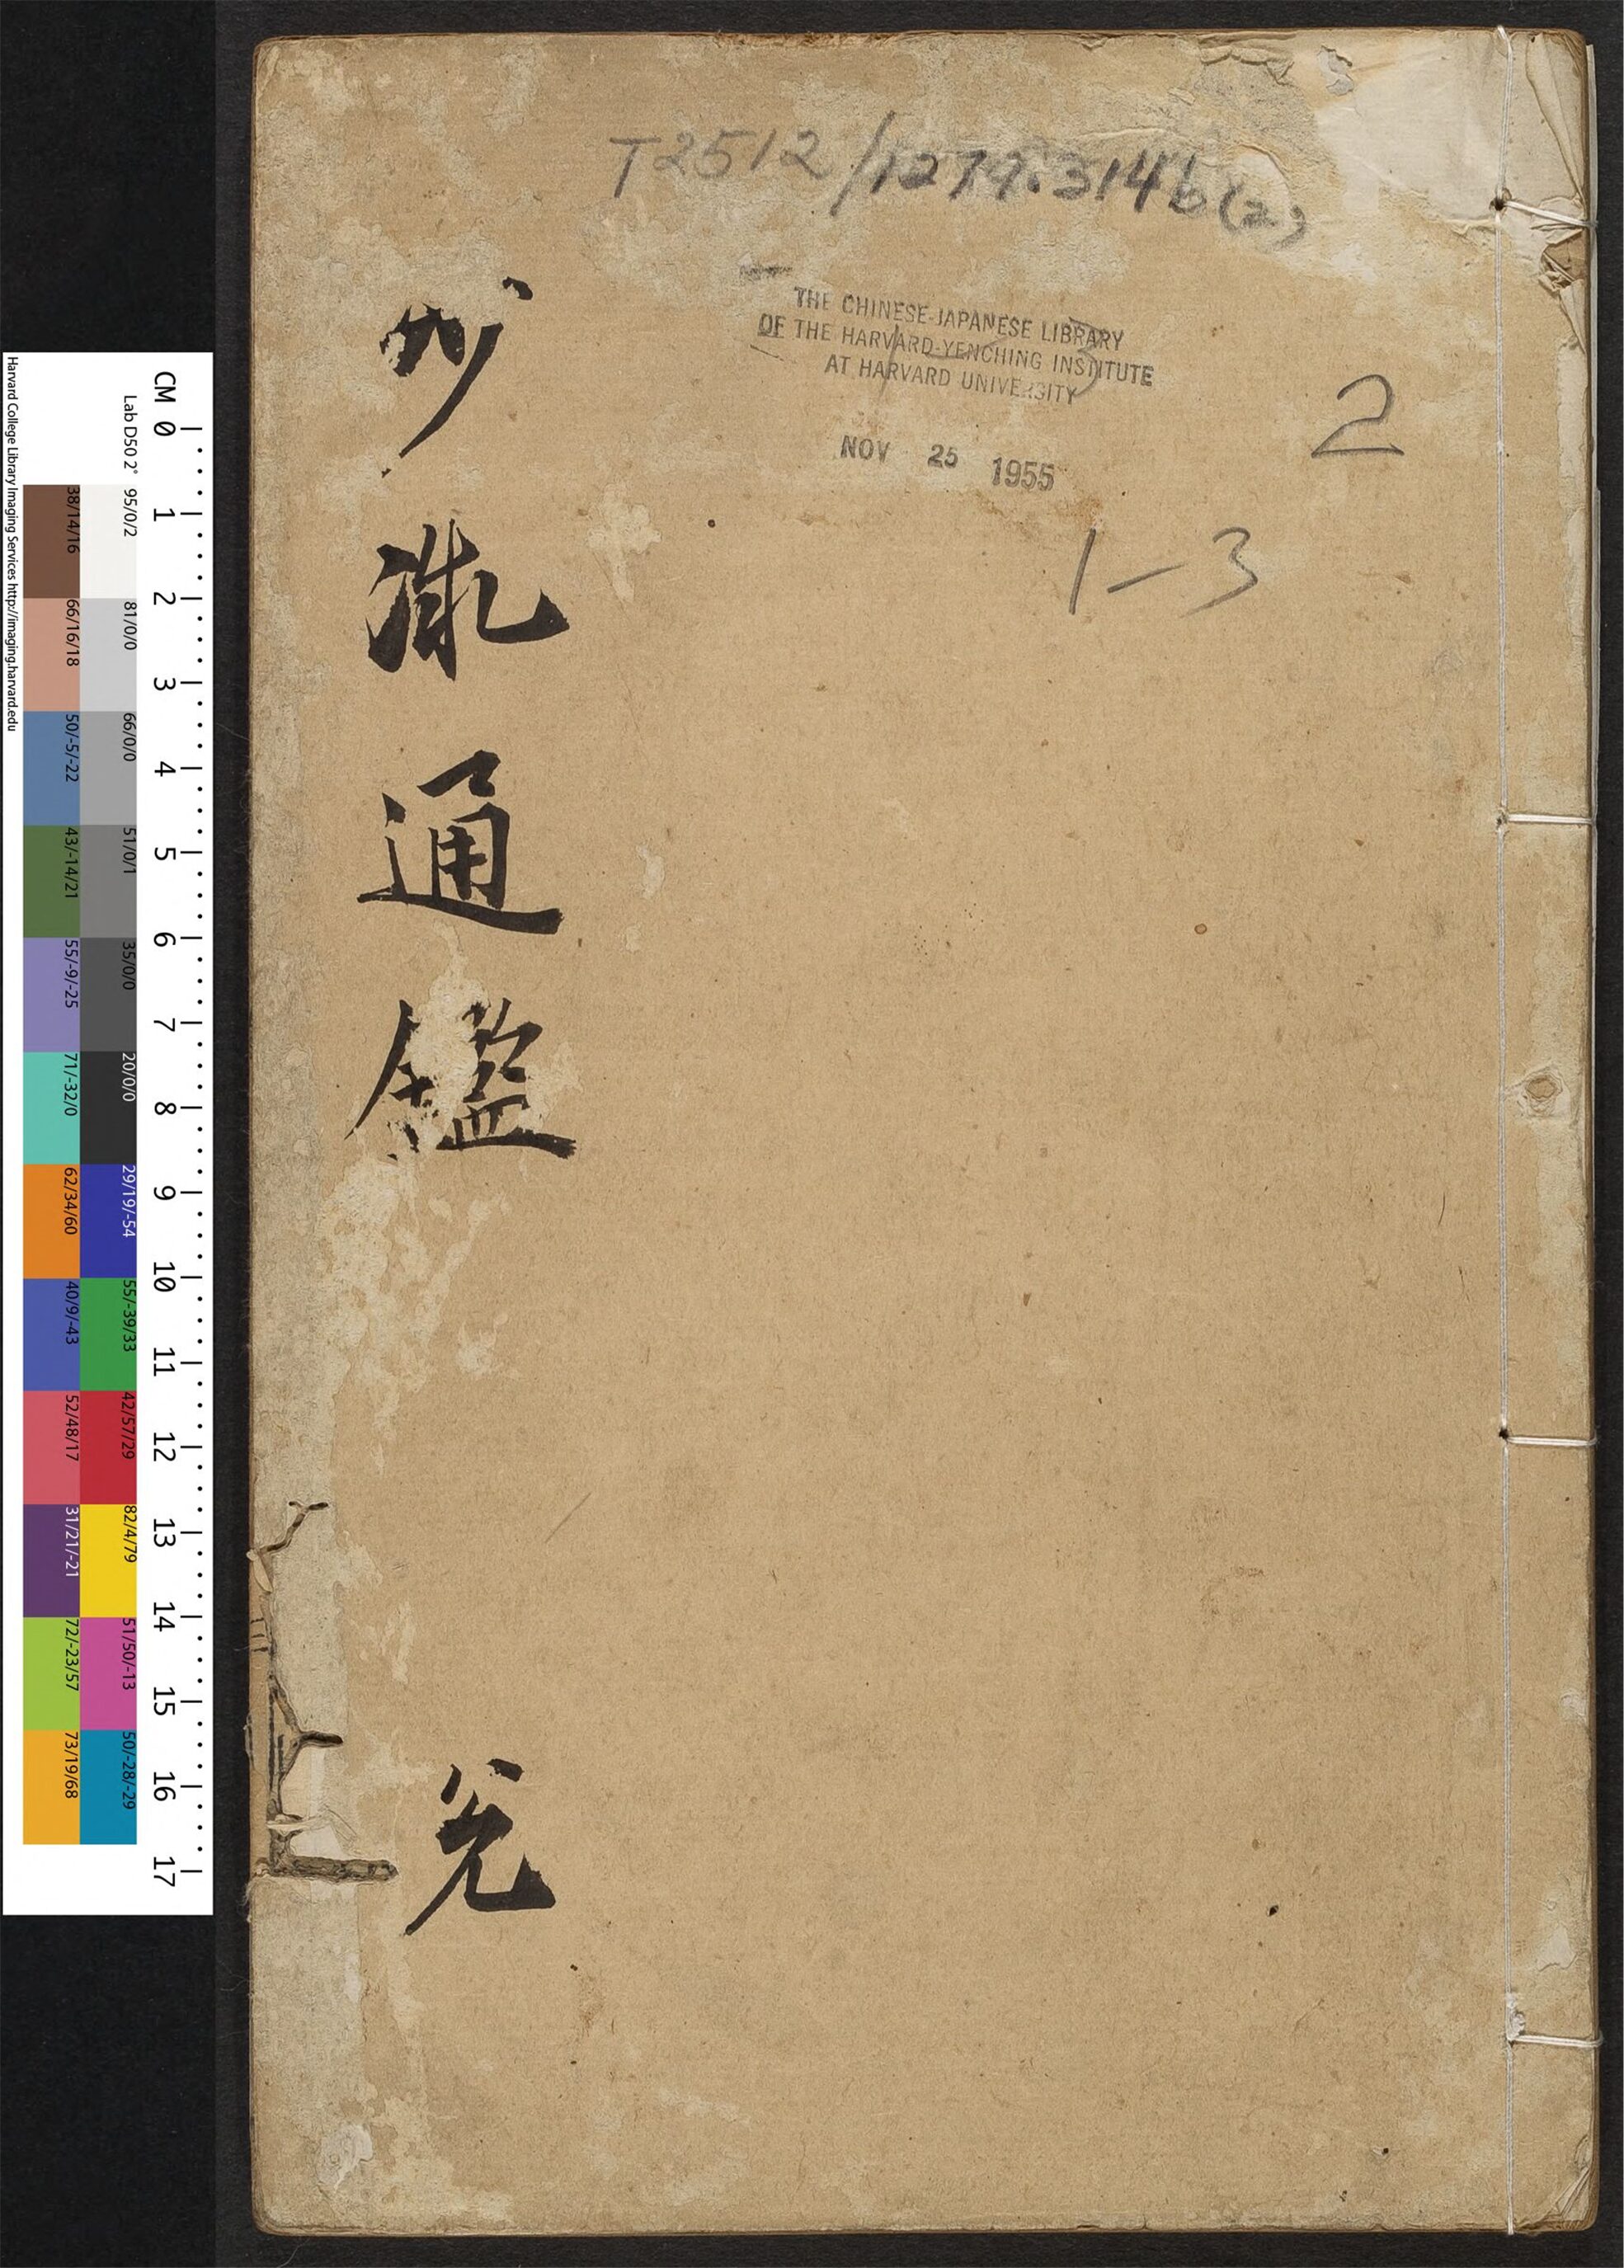 T2512/1279.314b(2)
THE CHINESE-JAPANESE LIBRARY
OF THE HARVARD-YENCHING INSTITUTE
AT HARVARD UNIVERSITY
NOV 25 1955
2
1-3
少微通鑑
兊
Harvard College Library Imaging Services http://imaging.harvard.edu
Lab D50 2°
CM 0 1 2 3 4 5 6 7 8 9 10 11 12 13 14 15 16 17
95/0/2 81/0/0 66/0/0 51/0/1 35/0/0 20/0/0 29/19/-54 55/-39/33 42/57/29 82/4/79 51/50/-13 50/-28/-29
38/14/16 66/16/18 50/-5/-22 43/-14/21 55/-9/-25 71/-32/0 62/34/60 40/9/-43 52/48/17 31/21/-21 72/-23/57 73/19/68